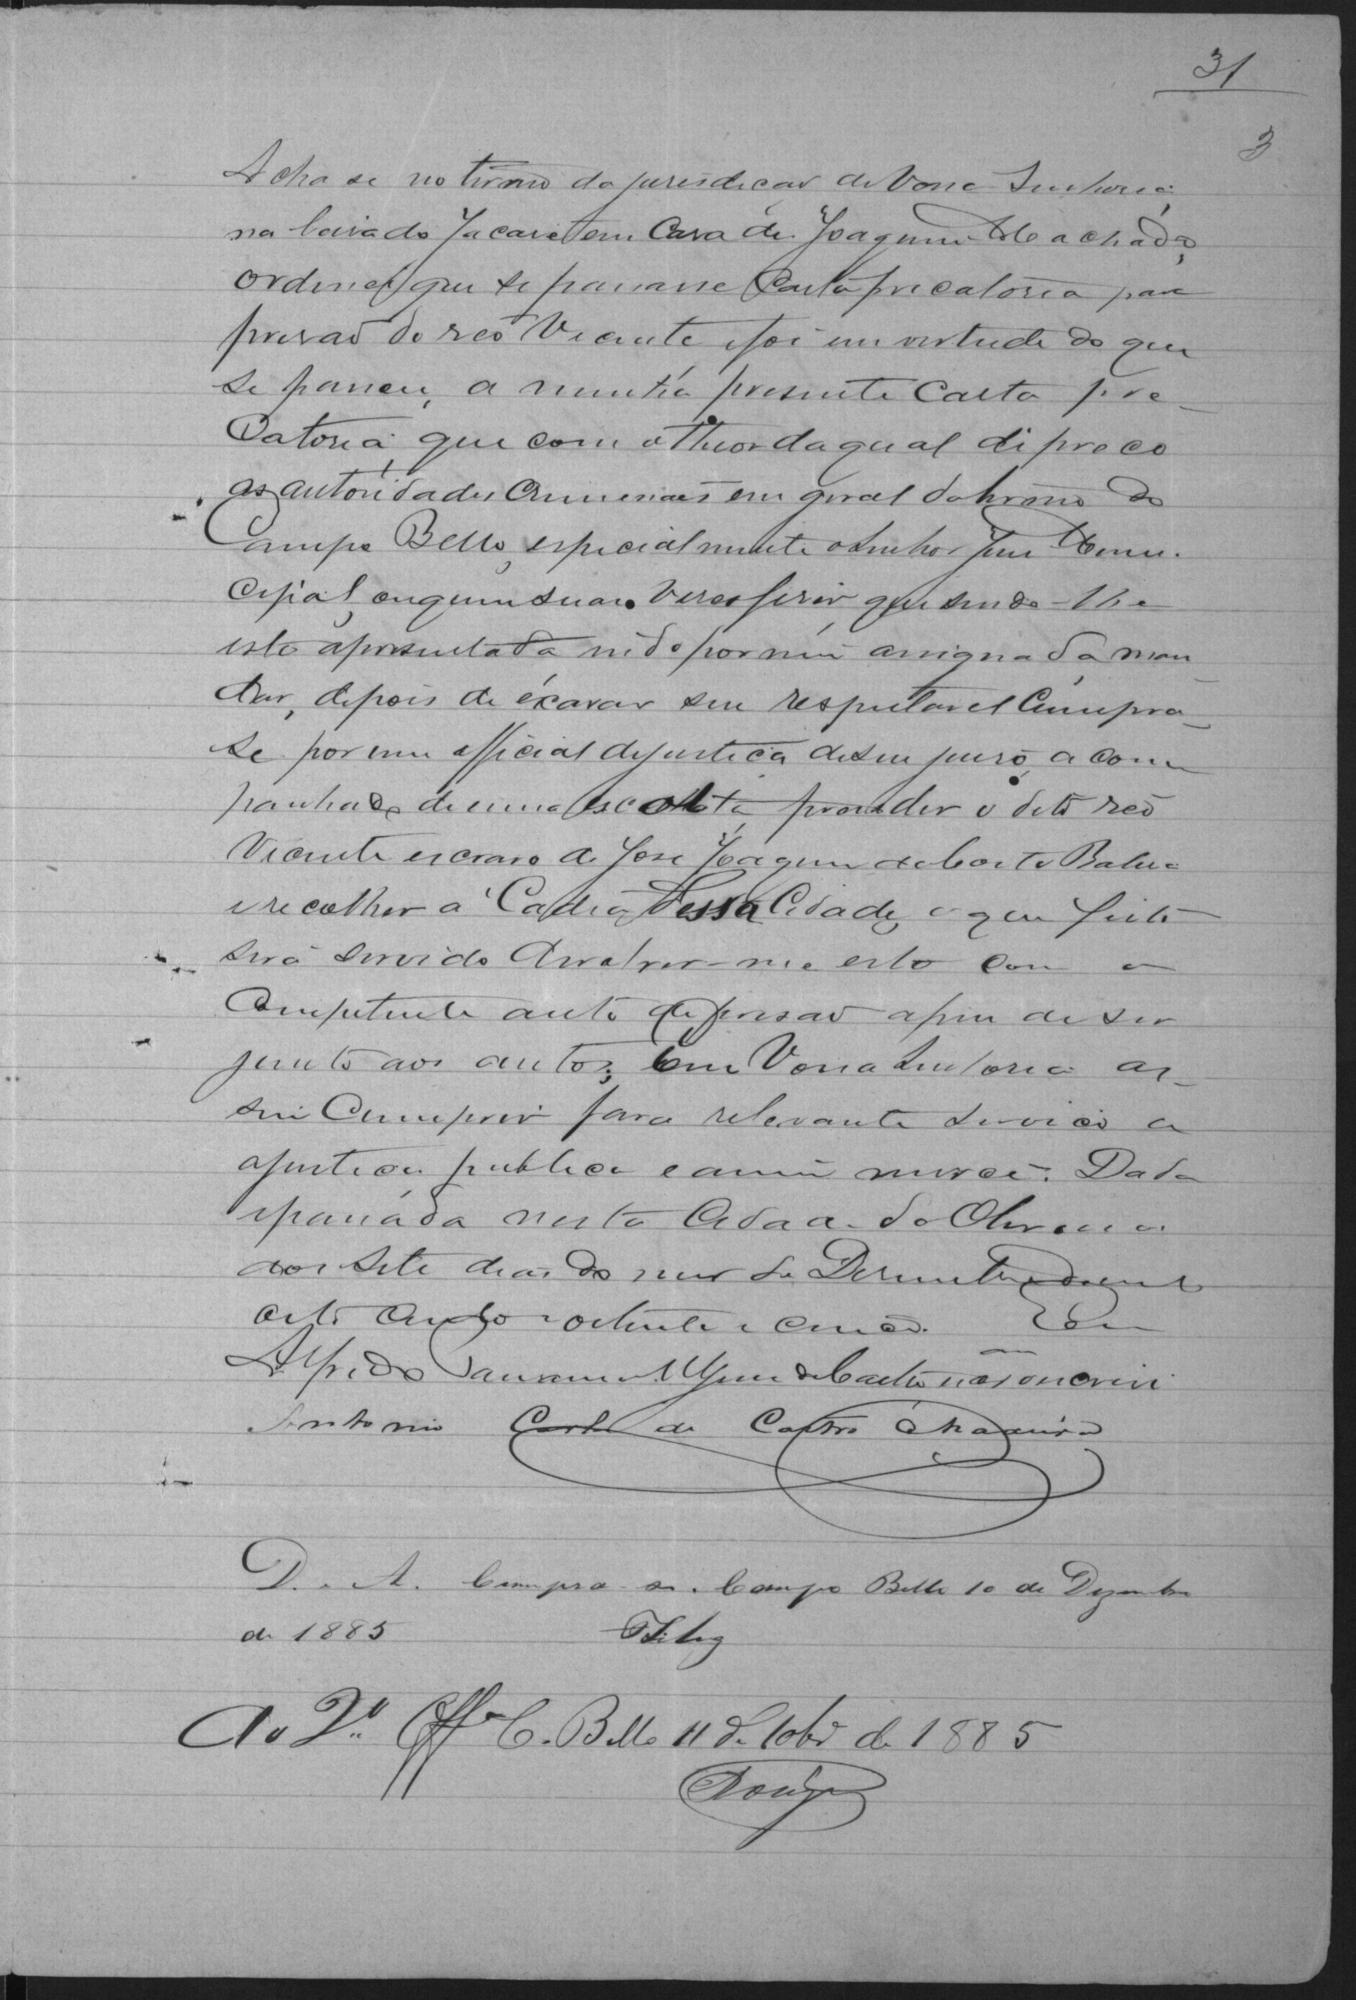 31
3
Acha se no termo da jurisdicaõ de Vossa Senhoria,
na beira do Jacaré em Casa de Joaquim Machado,
ordenei que se passasse Carta precatoria para
prisaõ do reo Vicente, e foi em virtude do que
se passou, a minha presente Carta pre-
catoria que com o theor da qual depreco
as autoridades Criminaes em geral do termo do
Campo Bello, especialmente o Senhor Juiz Muni-
cipal, ou quem suas veses fiser, que sendo-lhe
esta apresentada indo por mim assignada man
dar, depois de exarar seu respeitavel Cumpra-
se por um official de justiça de seu juiso, acom
panhado de uma escolta prender o dito reo
Vicente escravo de José Joaquim da Costa
e recolher a Cadeia dessa Cidade, o que feito
será servido devolver-me esta com o
Competente auto de prisaõ afim de ser
junto aos autos; Em Vossa Senhoria as-
sim Cumprir fará relevante serviço a
a justiça publica e a mim mercê. Dada
e passada nesta Cidade do Oliveira
aos sete dias do mes de Desembro de mil
oito centos e oitenta e cinco. Eu
Alfredo de Castro escrivaõ escrevi
Antonio Carlos de Castro Madeira
D. e A. Cumpra-se. Campo Bello 10 de Dezembro
de 1885
Ao 2.º Off.º C. Bello 11 de 10br.º de 1885